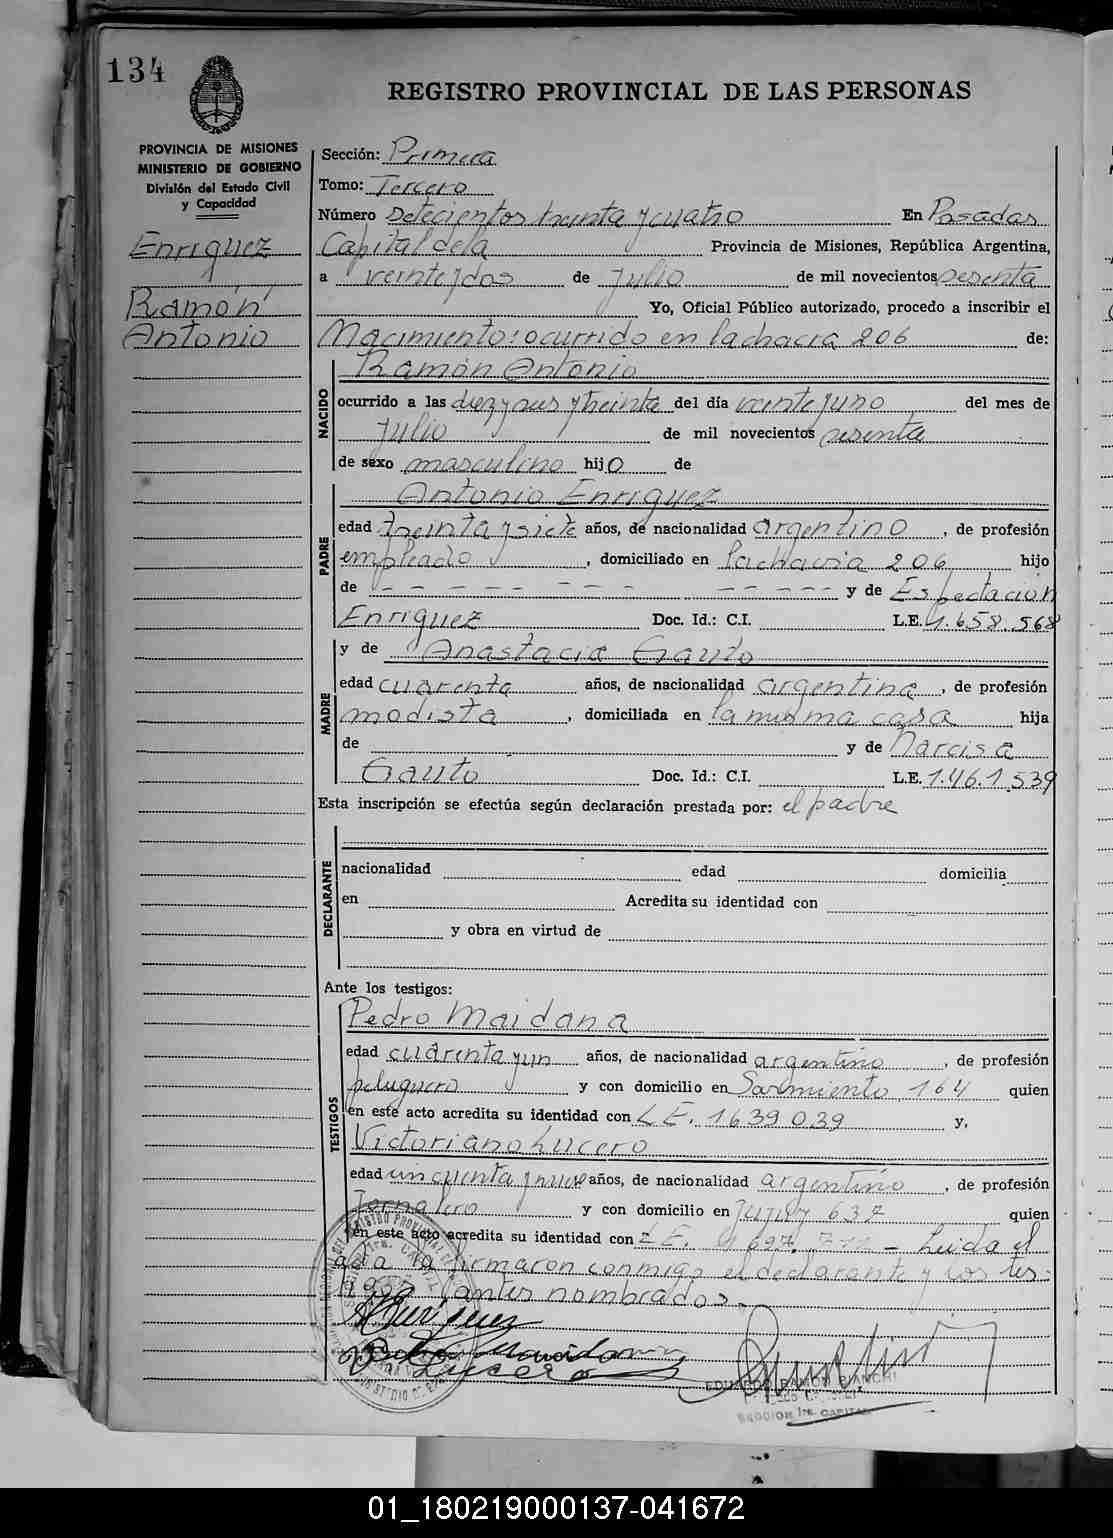 134
REGISTRO PROVINCIAL DE LAS PERSONAS
PROVINCIA DE MISIONES
MINISTERIO DE GOBIERNO
División del Estado Civil
y Capacidad
Enriquez
Ramón
Antonio
Sección: Primera
Tomo: Tercero
Número Setecientos treinta y cuatro En Posadas
Capital de la Provincia de Misiones, República Argentina,
a veinte y dos de Julio de mil novecientos sesenta
Yo, Oficial Público autorizado, procedo a inscribir el
Nacimiento: ocurrido en la chacra 206 de:
NACIDO
Ramón Antonio
ocurrido a las diez y seis y treinta del día veinte y uno del mes de
Julio de mil novecientos sesenta
de sexo masculino hijo de
PADRE
Antonio Enriquez
edad treinta y siete años, de nacionalidad argentino, de profesión
empleado, domiciliado en la chacra 206 hijo
de - - - - - - - - - - y de Espectación
Enriquez Doc. Id.: C.I. L.E. 1.658.568
MADRE
y de Anastacia Gauto
edad cuarenta años, de nacionalidad argentina, de profesión
modista, domiciliada en la misma casa hija
de y de Narcisa
Gauto Doc. Id.: C.I. L.E. 1.461.539
Esta inscripción se efectúa según declaración prestada por: el padre
DECLARANTE
nacionalidad edad domicilia
en Acredita su identidad con
y obra en virtud de
Ante los testigos:
TESTIGOS
Pedro Maidana
edad cuarenta y un años, de nacionalidad argentino, de profesión
peluquero y con domicilio en Sarmiento 164 quien
en este acto acredita su identidad con L.E. 1639039 y,
Victoriano Lucero
edad cincuenta y nueve años, de nacionalidad argentino, de profesión
Jornalero y con domicilio en Jujuy 637 quien
en este acto acredita su identidad con L.E. - Leida el
acta la firmaron conmigo el declarante y los tes-
tigos antes nombrados.
Enriquez
Maidana
Lucero
EDUARDO RAMON BIANCHI
SECCION 1ra. CAPITAL
01_180219000137-041672